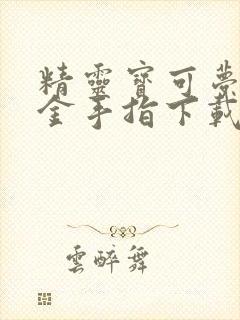 精靈寶可夢
金手指下載
雲醉舞